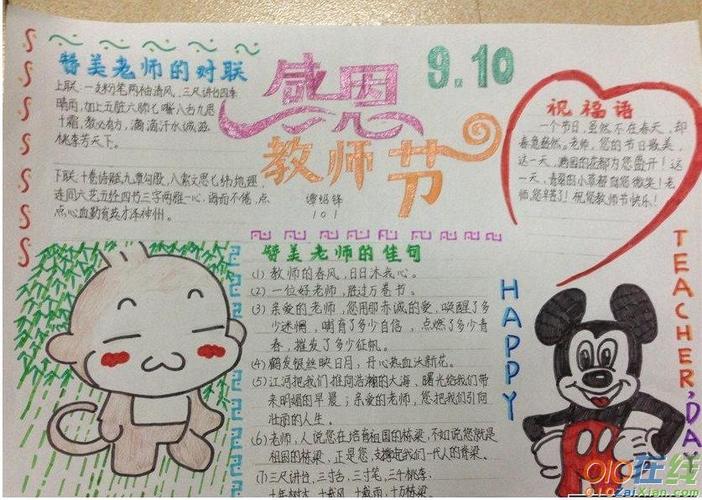 赞美老师的对联
上联：一支粉笔两袖清风，三尺讲台四季
晴雨，加上五脏六肺七嘴八舌九思
十霜，教必有方，滴滴汗水诚滋
桃李芳天下。
下联：十卷诗赋九章勾股，八索文思七纬地理，
连同六艺五经四书三字两雅一心，诲而不倦，点
点心血勤育英才泽神州。
感恩
教师节
9.10
101
祝福语
一个节日，虽然不在春天，却
春意盎然。老师，您的节日最美，
这一天，满园的花都为您盛开！这
一天，青翠的小草都向您微笑！老
师，您辛苦了！祝您教师节快乐！
赞美老师的佳句
(1) 教师的春风，日日沐我心。
(2) 一位好老师，胜过万卷书。
(3) 亲爱的老师，您用那赤诚的爱，唤醒了多
少迷惘，哺育了多少自信，点燃了多少青
春，摧发了多少征帆。
(4) 鹤发银丝映日月，丹心热血沃新花。
(5) 江河把我们推向浩瀚的大海，曙光给我们带
来明媚的早晨；亲爱的老师，您把我们引向
壮丽的人生。
(6) 老师，人说您在培育祖国的栋梁，不如说您就是
祖国的栋梁，正是您支撑起我们一代人的脊梁。
(7) 三尺讲台，三寸舌，三寸笔，三千桃李
十年树木，十载风，十载雨，十万栋梁
HAPPY
TEACHER'DAY
010在线
010ZaiXian.com